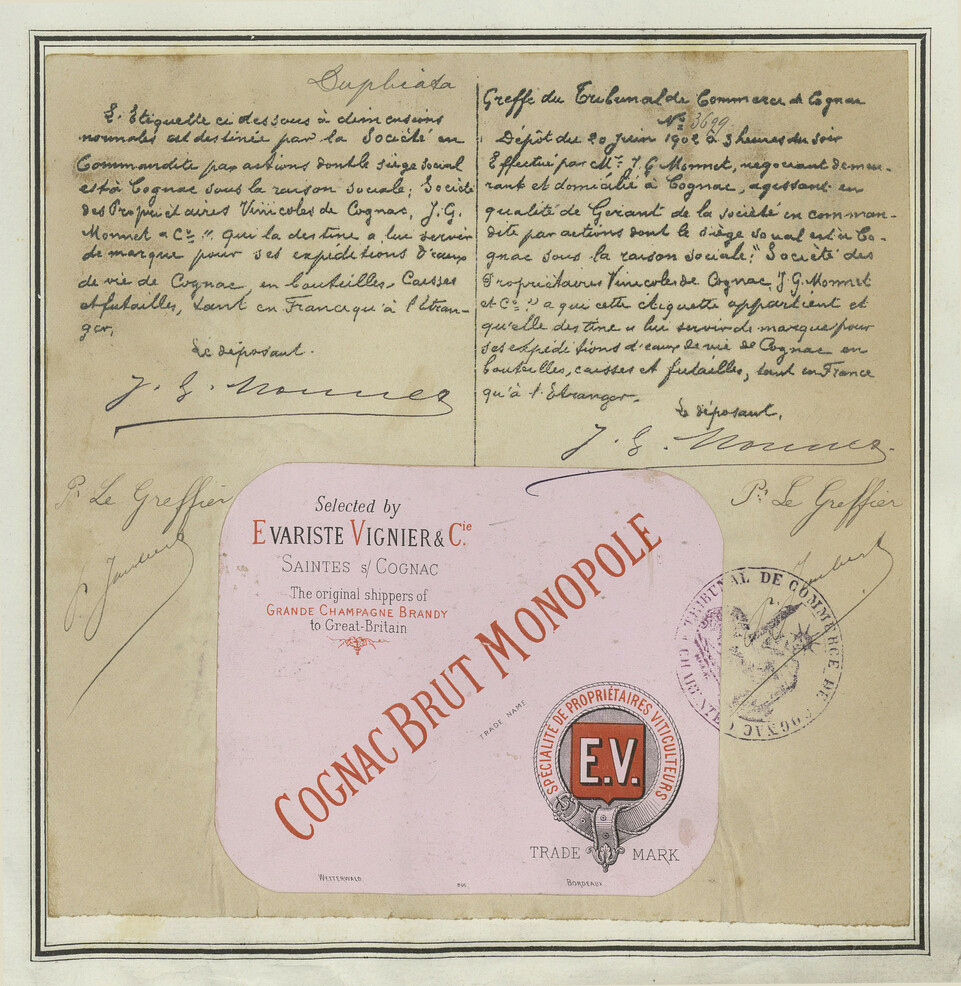 Duplicata
L'Etiquette ci dessous à dimensions
normales est destinée par la Société en
Commandite par actions dont le siège social
est à Cognac sous la raison sociale; Société
des Propriétaires Vinicoles de Cognac, J. G.
Monnet & Cie ". qui la destine a lui servir
de marque pour ses expéditions d'eaux
de vie de Cognac, en bouteilles, Caisses
et futailles, tant en France qu'à l'étran-
ger,
Le déposant.
J. G. Monnet
Pr Le Greffier
Greffe du Tribunal de Commerce de Cognac
No 3699
Dépôt du 20 Juin 1902 à 3 heures du soir
Effectué par Mr. J. G Monnet, négociant demeu-
rant et domicilié à Cognac, agissant en
qualité de Gérant de la société en comman-
dite par actions dont le siège social est à Co-
gnac sous la raison sociale: "Société des
Propriétaires Vinicoles de Cognac, J. G. Monnet
et Cie " a qui cette étiquette appartient et
qu'elle destine a lui servir de marque pour
ses expéditions d'eaux de vie de Cognac en
bouteilles, caisses et futailles, tant en France
qu'à l'Etranger.
Le déposant,
J. G. Monnet.
Pr Le Greffier
Selected by
EVARISTE VIGNIER & Cie.
SAINTES s/ COGNAC
The original shippers of
GRANDE CHAMPAGNE BRANDY
to Great-Britain
COGNAC BRUT MONOPOLE
TRADE NAME
SPÉCIALITÉ DE PROPRIÉTAIRES VITICULTEURS
E.V.
TRADE MARK
WETTERWALD
BORDEAUX
TRIBUNAL DE COMMERCE DE COGNAC (CHARENTE)